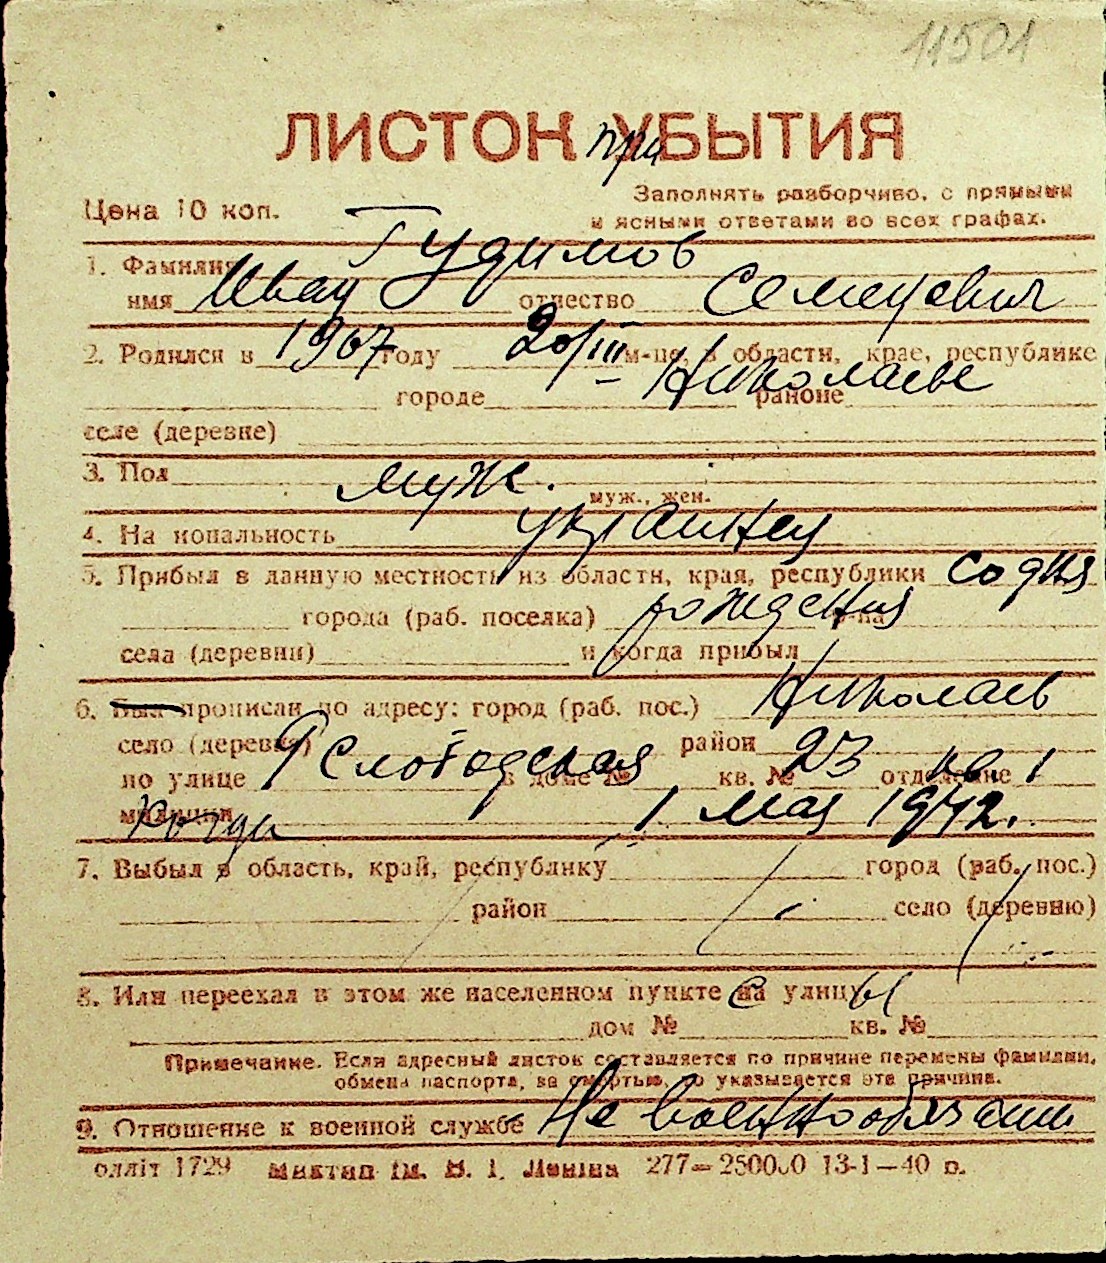 11501
ЛИСТОК при УБЫТИЯ
Цена 10 коп.
Заполнять разборчиво, с прямыми
и ясными ответами во всех графах.
1. Фамилия Гудимов
имя Иван отчество Семенович
2. Родился в 1907 году 20/III м-це, в области, крае, республике
городе Николаеве районе
селе (деревне)
3. Пол муж.
муж., жен.
4. Национальность украинец
5. Прибыл в данную местность из области, края, республики со дня
города (раб. поселка) рождения р-на
села (деревни) и когда прибыл
6. Был прописан по адресу: город (раб. пос.) Николаев
село (деревня) район
по улице Слободская в доме № кв. № 23 отделение на 1
милиции 1 мая 1942.
7. Выбыл в область, край, республику город (раб. пос.)
район село (деревню)
8. Или переехал в этом же населенном пункте на улицу
дом № кв. №
Примечание. Если адресный листок составляется по причине перемены фамилии,
обмена паспорта, за смертью, то указывается эта причина.
9. Отношение к военной службе Не военнообязан
олліт 1729 Миктип ім. В. І. Леніна 277—250000 13-1—40 р.